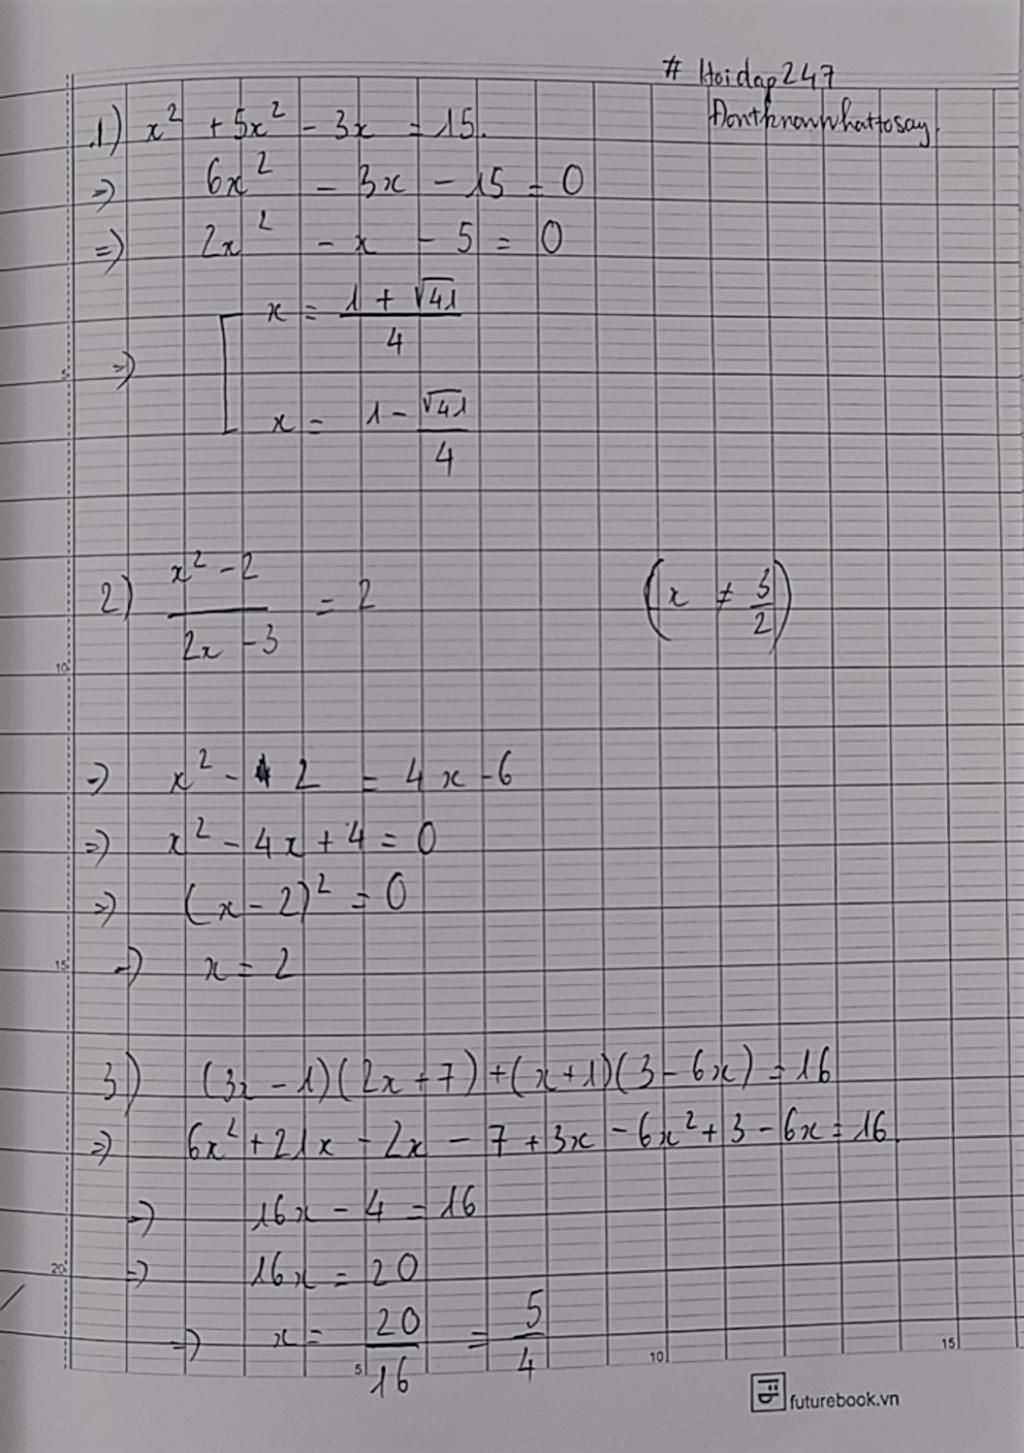 # Hoidap247
Dontknowwhattosay
1) x² + 5x² - 3x = 15.
=> 6x² - 3x - 15 = 0
=> 2x² - x - 5 = 0
=> [ x = (1 + √41)/4
x = 1 - √41/4
2) (x² - 2)/(2x - 3) = 2 (x ≠ 3/2)
=> x² - 2 = 4x - 6
=> x² - 4x + 4 = 0
=> (x - 2)² = 0
=> x = 2
3) (3x - 1)(2x + 7) + (x + 1)(3 - 6x) = 16
=> 6x² + 21x - 2x - 7 + 3x - 6x² + 3 - 6x = 16
=> 16x - 4 = 16
=> 16x = 20
=> x = 20/16 = 5/4
5
10
15
20
5
10
15
futurebook.vn